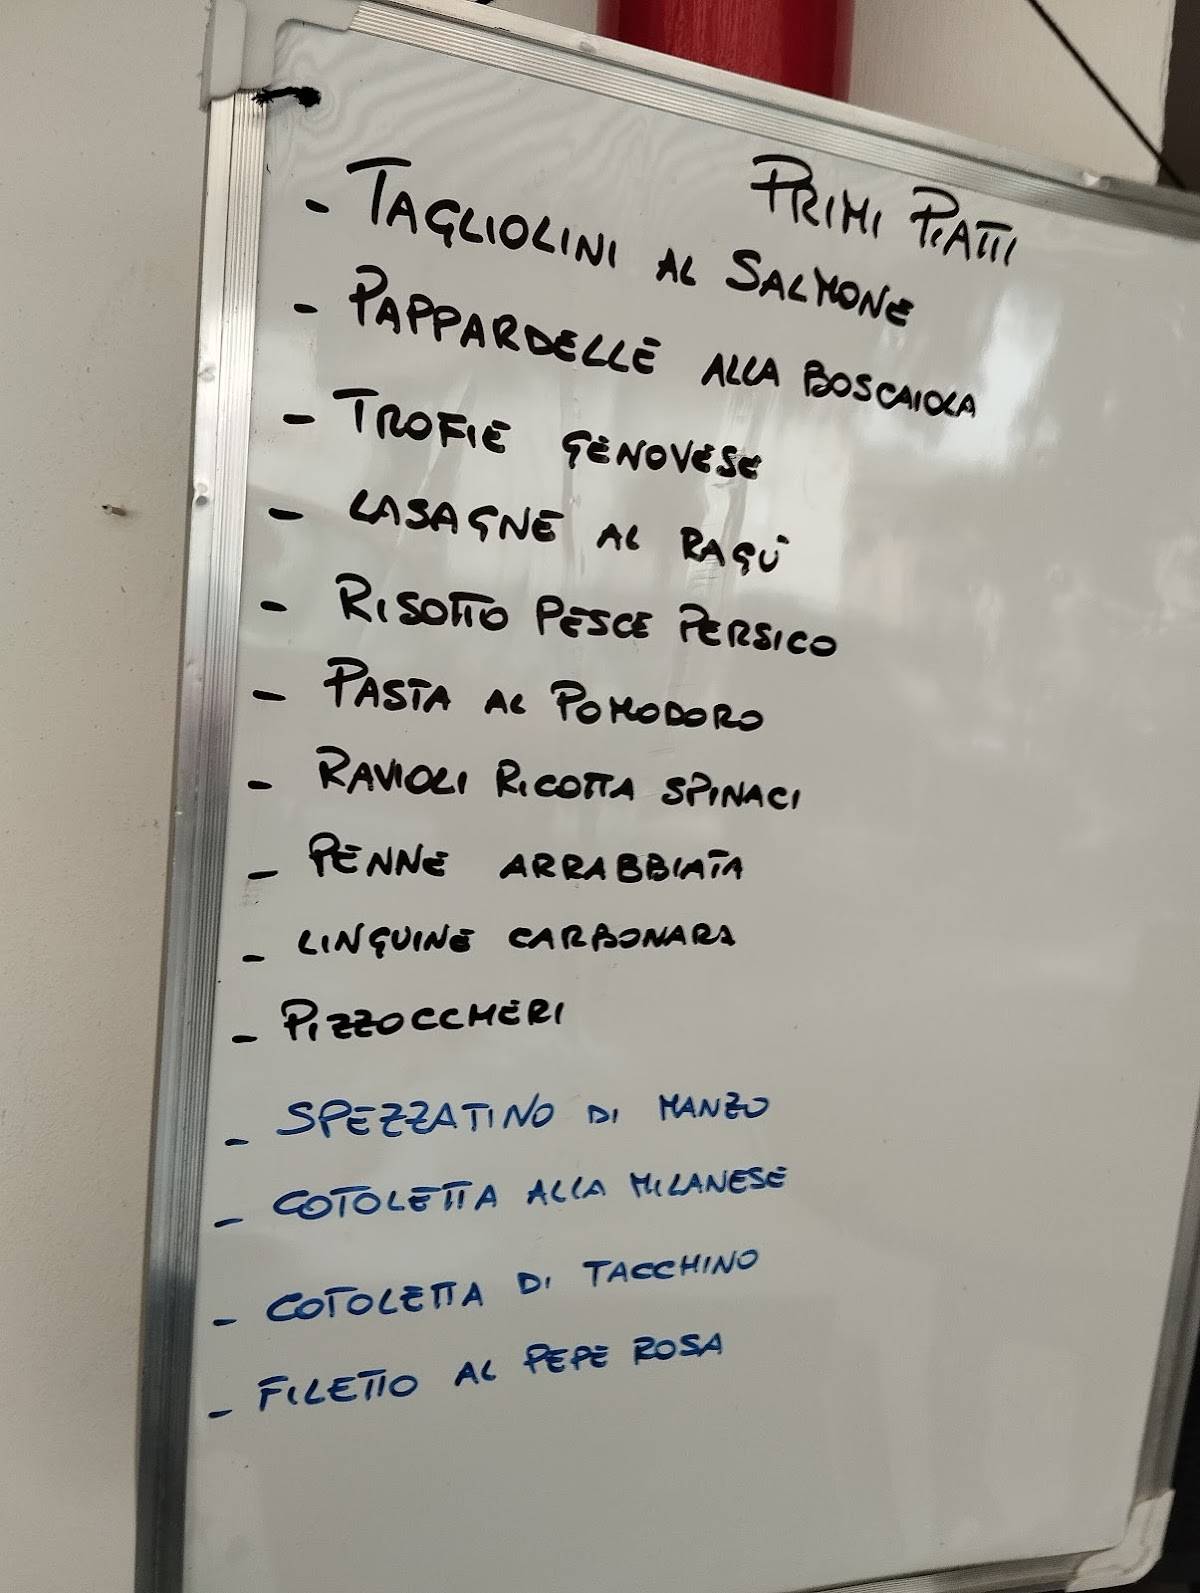 PRIMI PIATTI
- TAGLIOLINI AL SALMONE
- PAPPARDELLE ALLA BOSCAIOLA
- TROFIE GENOVESE
- LASAGNE AL RAGÙ
- RISOTTO PESCE PERSICO
- PASTA AL POMODORO
- RAVIOLI RICOTTA SPINACI
- PENNE ARRABBIATA
- LINGUINE CARBONARA
- PIZZOCCHERI
- SPEZZATINO DI MANZO
- COTOLETTA ALLA MILANESE
- COTOLETTA DI TACCHINO
- FILETTO AL PEPE ROSA